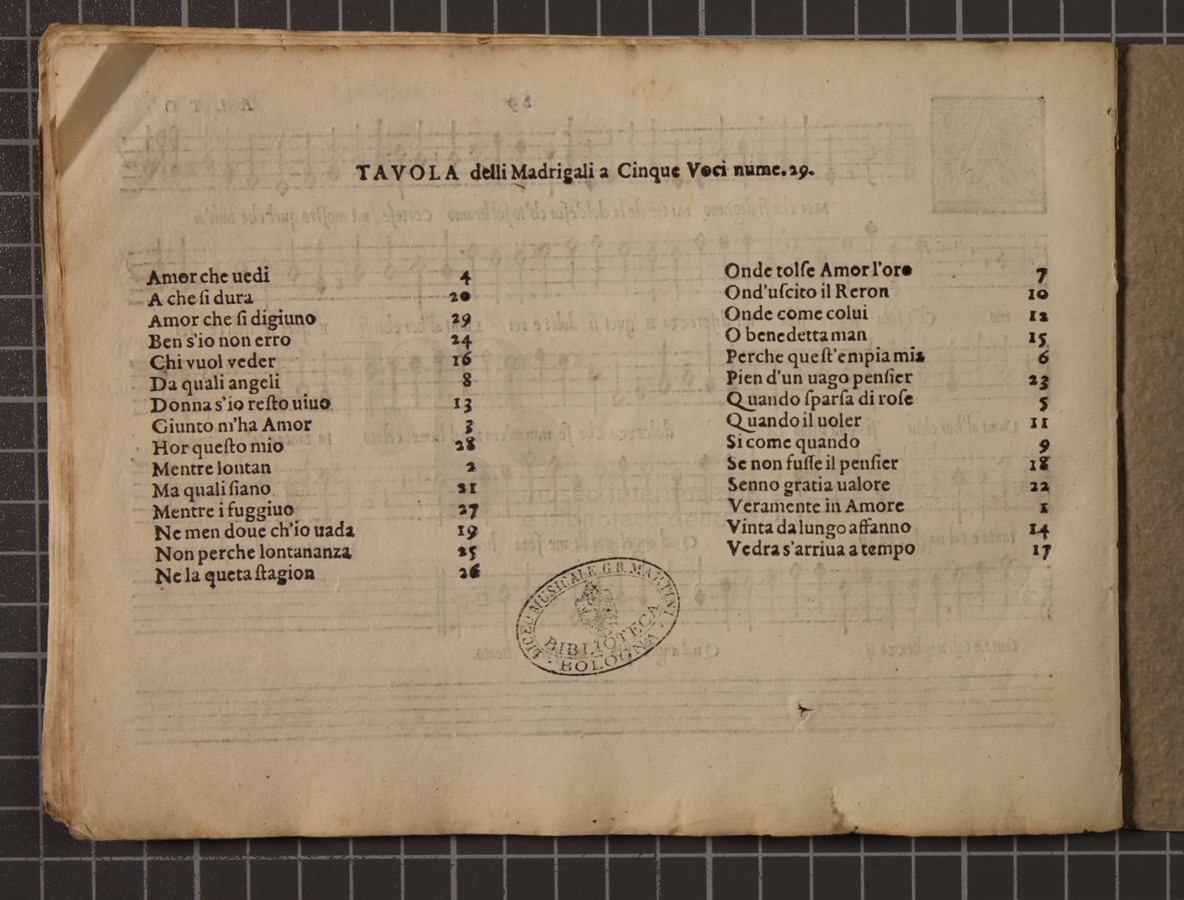 TAVOLA delli Madrigali a Cinque Voci nume.29.
Amor che uedi 4
A che ſi dura 20
Amor che ſi digiuno 29
Ben s'io non erro 24
Chi vuol veder 16
Da quali angeli 8
Donna s'io reſto uiuo 13
Giunto m'ha Amor 3
Hor queſto mio 28
Mentre lontan 2
Ma quali ſiano 21
Mentre i fuggiuo 27
Ne men doue ch'io uada 19
Non perche lontananza 25
Ne la queta ſtagion 26
Onde tolſe Amor l'oro 7
Ond'uſcito il Reron 10
Onde come colui 12
O benedetta man 15
Perche queſt'empia mia 6
Pien d'un uago penſier 23
Quando ſparſa di roſe 5
Quando il uoler 11
Si come quando 9
Se non fuſſe il penſier 18
Senno gratia ualore 22
Veramente in Amore 1
Vinta da lungo affanno 14
Vedra s'arriua a tempo 17
LICEO MUSICALE G.B. MARTINI
BIBLIOTECA
BOLOGNA